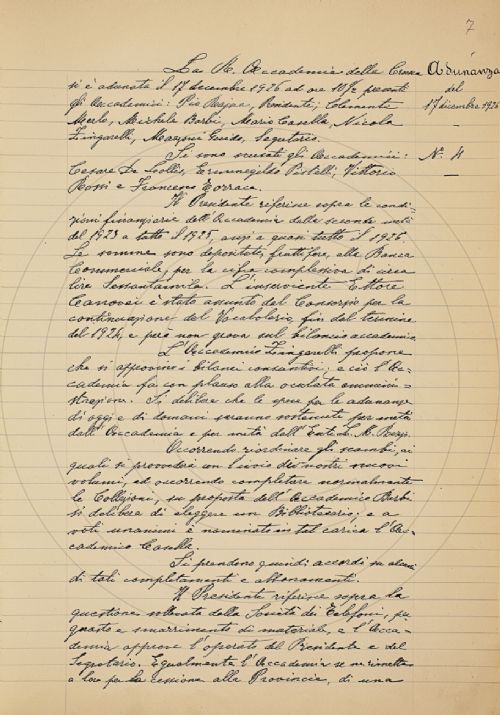 7
Adunanza
del
17 dicembre 1926
N. 4
La R. Accademia della Crusca
si è adunata il 17 dicembre 1926 ad ore 10½ presenti
gli Accademici: Pio Rajna, Presidente; Clemente
Merlo, Michele Barbi, Mario Casella, Nicola
Zingarelli, Mazzoni Guido, Segretario.
Si sono scusati gli Accademici:
Cesare De Lollis, Ermenegildo Pistelli, Vittorio
Rossi e Francesco Torraca.
Il Presidente riferisce sopra le condi-
zioni finanziarie dell'Accademia dalla seconda metà
del 1923 a tutto il 1925, anzi a quasi tutto il 1926.
Le somme sono depositate, fruttifere, alla Banca
Commerciale, per la cifra complessiva di circa
lire Sessantamila. L'inserviente Ettore
Canovai è stato assunto dal Consorzio per la
continuazione del Vocabolario fin dal termine
del 1924, e però non grava sul bilancio accademico.
L'Accademico Zingarelli propone
che si approvino i bilanci consuntivi; e ciò l'Ac-
cademia fa con plauso alla oculata amministra-
strazione. Si delibera che le spese per le adunanze
di oggi e di domani saranno sostenute per metà
dall'Accademia e per metà dall'Ente
Occorrendo riordinare gli scambi, ai
quali si provvederà con l'invio dei nostri nuovi
volumi, ed occorrendo completare normalmente
le Collezioni, su proposta dell'Accademico Barbi
si delibera di eleggere un Bibliotecario; e a
voti unanimi è nominato in tal carica l'Ac-
cademico Casella.
Si prendono quindi accordi su alcuni
di tali completamenti e abbonamenti.
Il Presidente riferisce sopra la
questione sollevata dalla Società dei Telefoni, per
guasto e smarrimento di materiale, e l'Acca-
demia approva l'operato del Presidente e del
Segretario. Egualmente l'Accademia se ne rimette
a loro per la cessione alla Provincia, di una